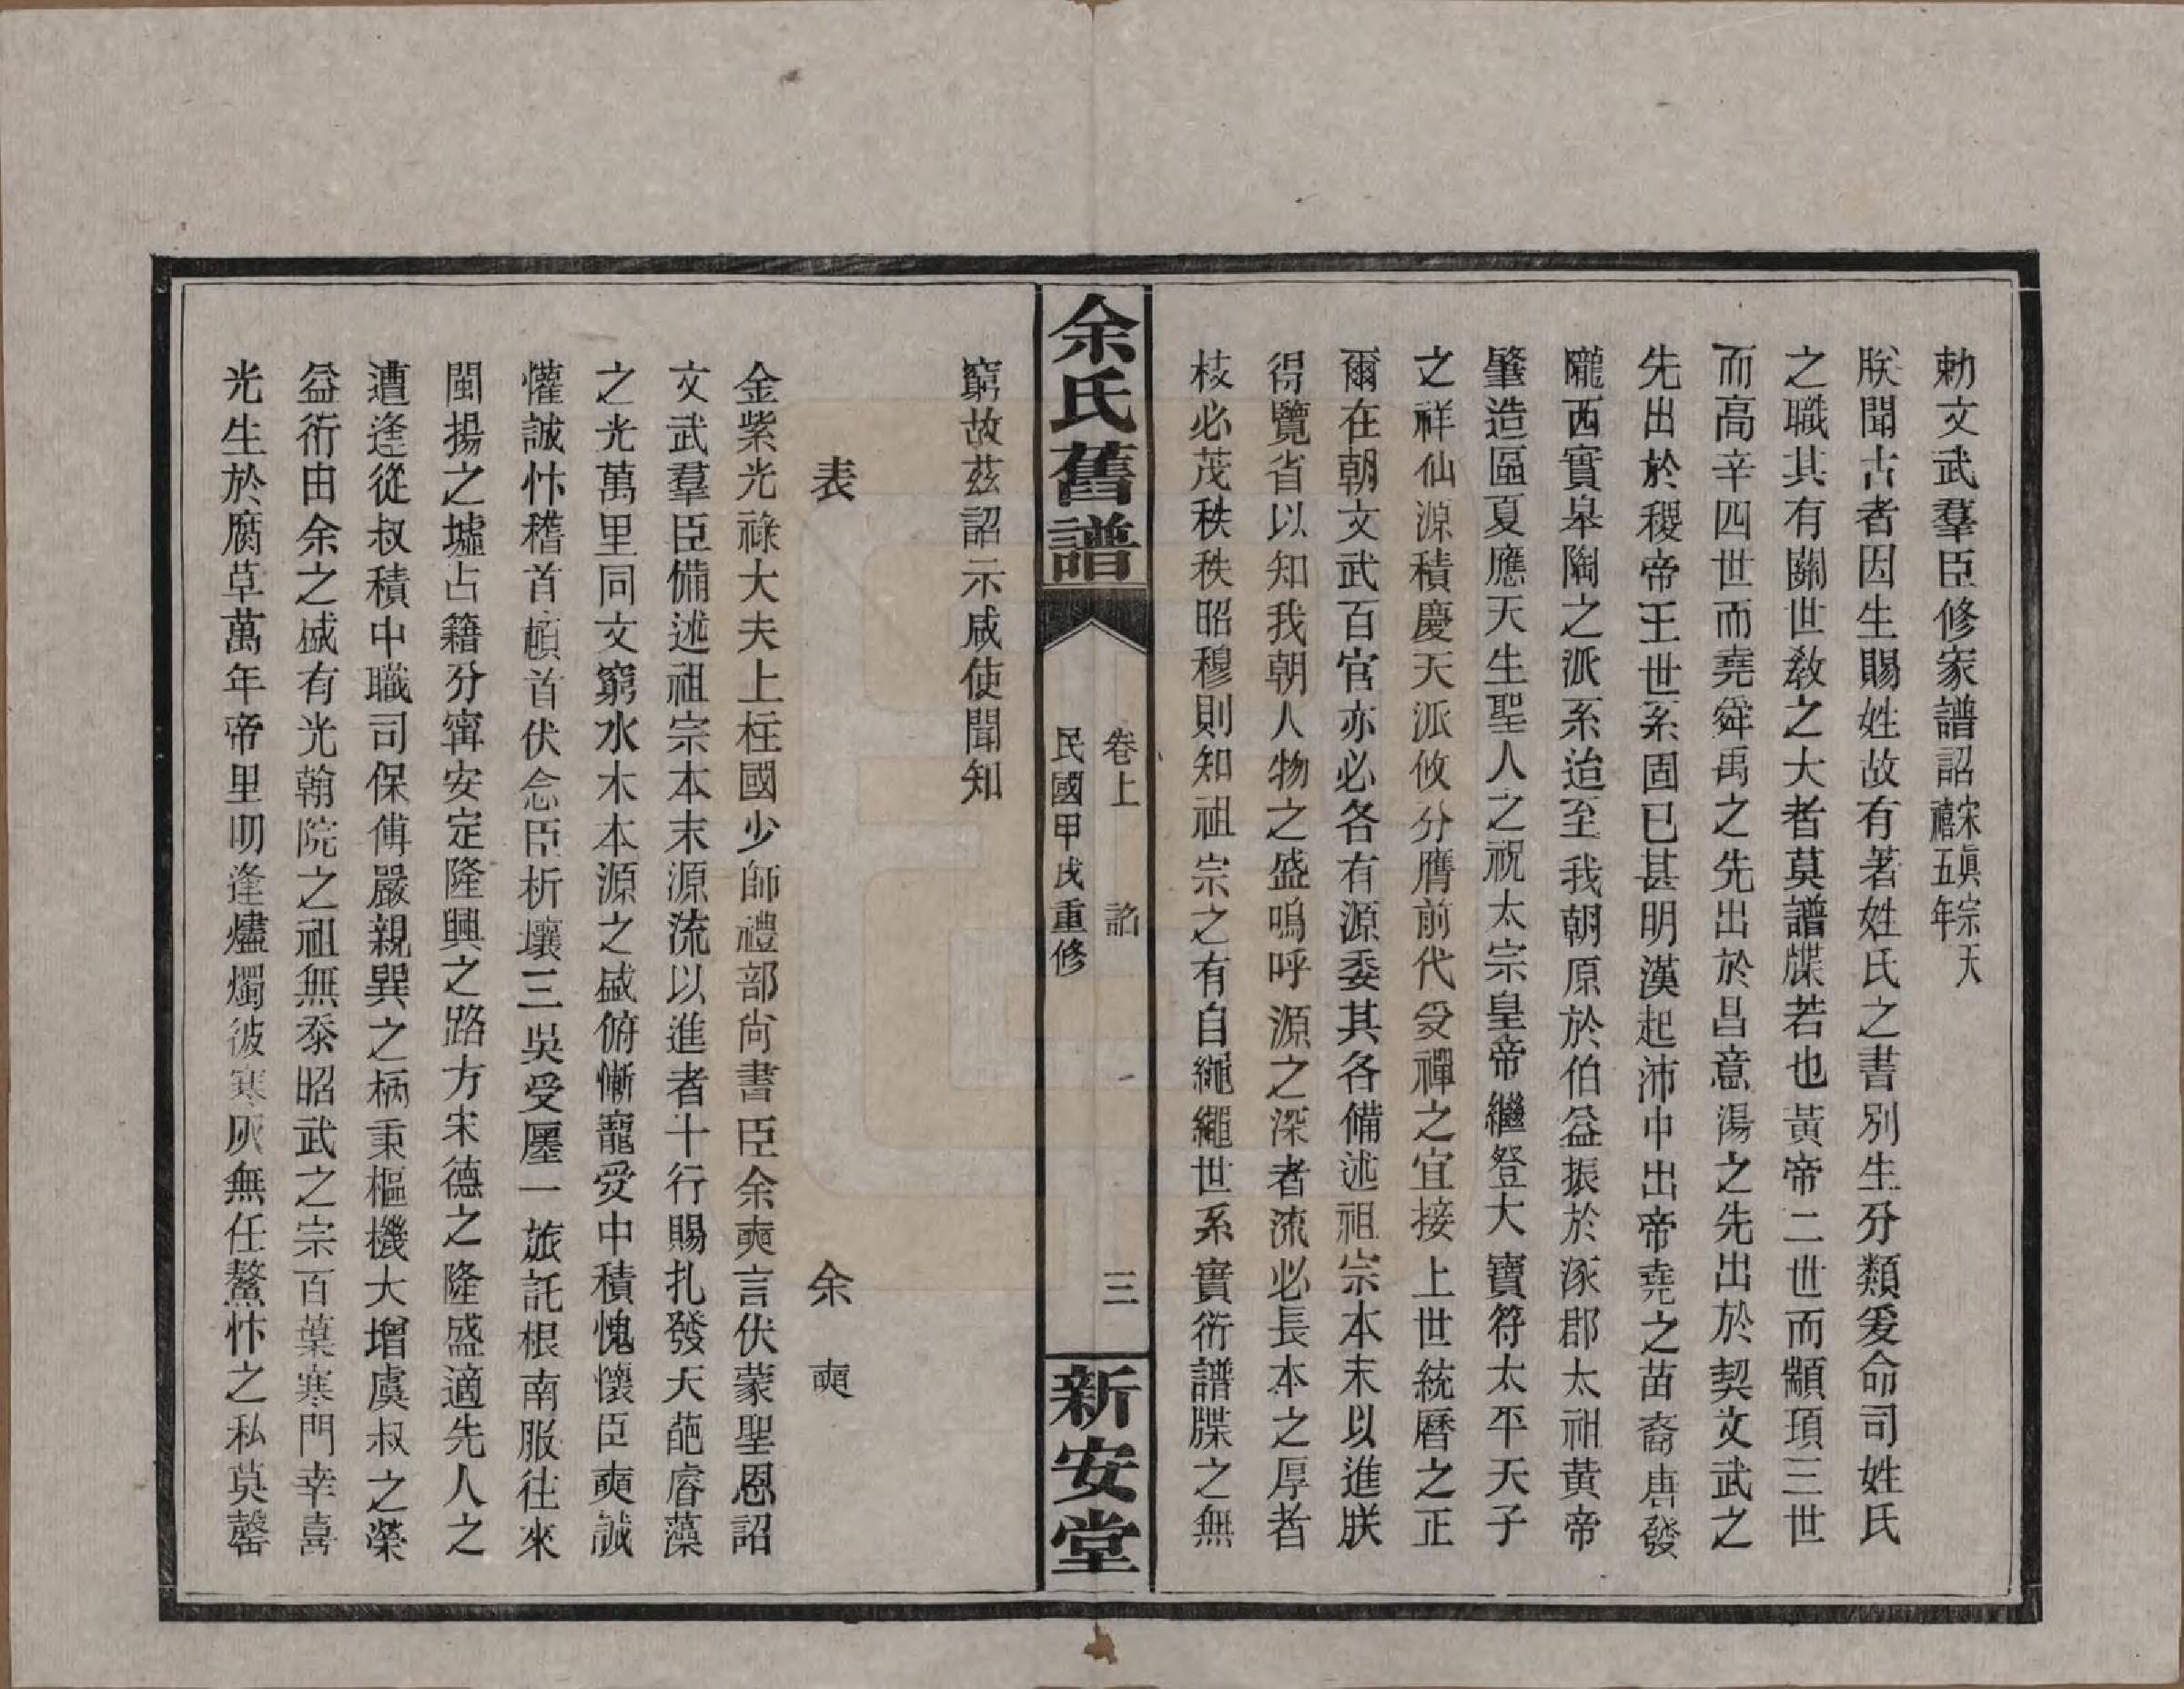 勅文武羣臣修家譜詔宋眞宗天禧五年
朕聞古者因生賜姓故有著姓氏之書別生分類爰命司姓氏
之職其有關世敎之大者莫譜牒若也黃帝二世而顓頊三世
而高辛四世而堯舜禹之先出於昌意湯之先出於契文武之
先出於稷帝王世系固已甚明漢起沛中出帝堯之苗裔唐發
隴西實皋陶之派系迨至我朝原於伯益振於涿郡太祖黄帝
肇造區夏應天生聖人之祝太宗皇帝繼登大寶符太平天子
之祥仙源積慶天派攸分膺前代受禪之宜接上世統曆之正
爾在朝文武百官亦必各有源委其各備述祖宗本末以進朕
得覽省以知我朝人物之盛嗚呼源之深者流必長本之厚者
枝必茂秩秩昭穆則知祖宗之有自繩繩世系實衍譜牒之無
余氏舊譜
卷上　詔　三
民國甲戌重修
新安堂
窮故茲詔示咸使聞知
表　余奭
金紫光祿大夫上柱國少師禮部尚書臣余奭言伏蒙聖恩詔
文武羣臣備述祖宗本末源流以進者十行賜扎發天葩睿藻
之光萬里同文窮水木本源之盛俯慚寵受中積愧懷臣奭誠
懽誠忭稽首頓首伏念臣析壤三吳受廛一旅託根南服往來
閩揚之墟占籍分寗安定隆興之路方宋德之隆盛適先人之
遭逢從叔積中職司保傅嚴親巽之柄秉樞機大增虞叔之榮
益衍由余之盛有光翰院之祖無忝昭武之宗百葉寒門幸喜
光生於腐草萬年帝里叨逢燼燭彼寒灰無任鰲忭之私莫罄